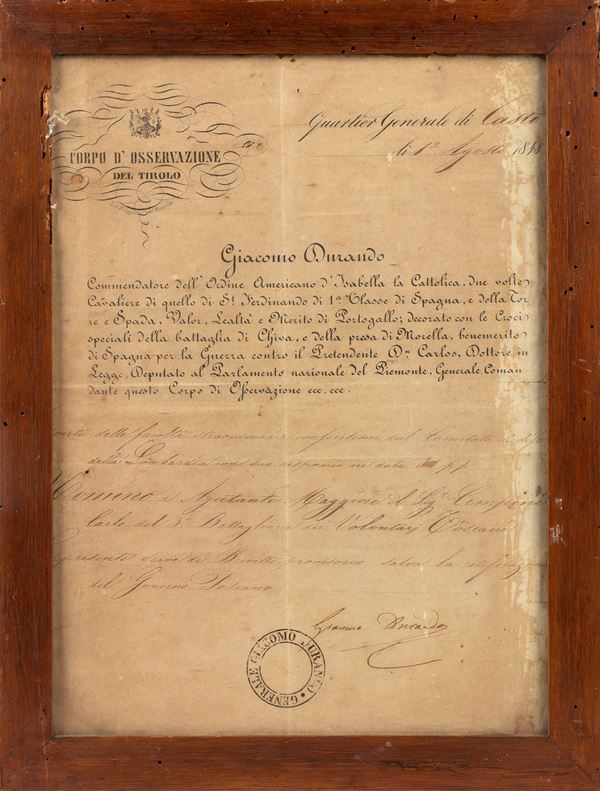 CORPO D'OSSERVAZIONE
DEL TIROLO
Quartier Generale di
li 1º Agosto 1848
Giacomo Durando
Commendatore dell'Ordine Americano d'Isabella la Cattolica, due volte
Cavaliere di quello di S.t Ferdinando di 1.a Classe di Spagna, e della Tor
re e Spada, Valor, Lealtà e Merito di Portogallo; decorato con le Croci
speciali della battaglia di Chiva, e della presa di Morella, benemerito
di Spagna per la Guerra contro il Pretendente D.n Carlos, Dottore in
Legge, Deputato al Parlamento nazionale del Piemonte, Generale Coman
dante questo Corpo di Osservazione ecc. ecc.
delle facoltà straordinarie conferitemi dal Comitato di
della Lombardia con suo dispaccio in data p.p.
Nomino a Ajutante Maggiore il Sig.r
Carlo del 3º Battaglione dei Volontarj Toscani
presente serve di Brevetto provvisorio salva la
del Governo Toscano
Giacomo Durando
GENERALE GIACOMO DURANDO